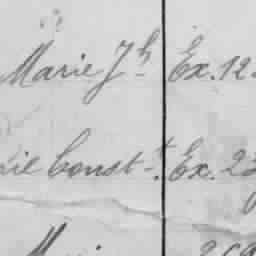 Marie Jh Ex. 12
rie Const-t. Ex. 23